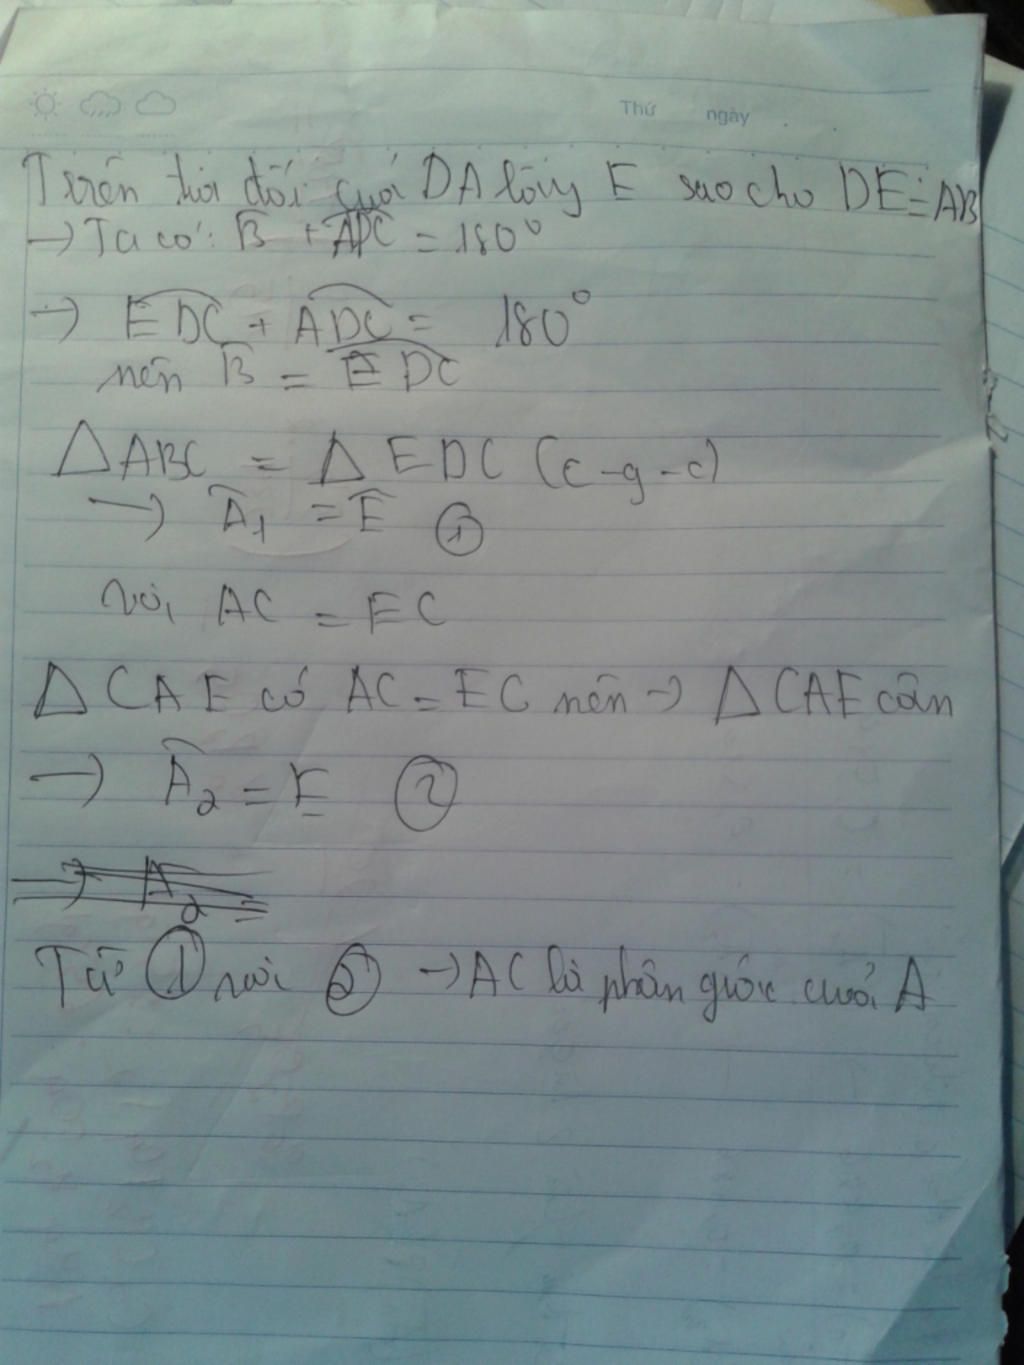 Thứ ngày
Trên tia đối của DA lấy E sao cho DE = AB
→ Ta có: B̂ + ADC = 180°
→ EDC + ADC = 180°
nên B̂ = EDC
△ABC = △EDC (c-g-c)
→ Â1 = Ê ①
với AC = EC
△CAE có AC = EC nên → △CAE cân
→ Â2 = E ②
→ A2 =
Từ ① với ② → AC là phân giác của A